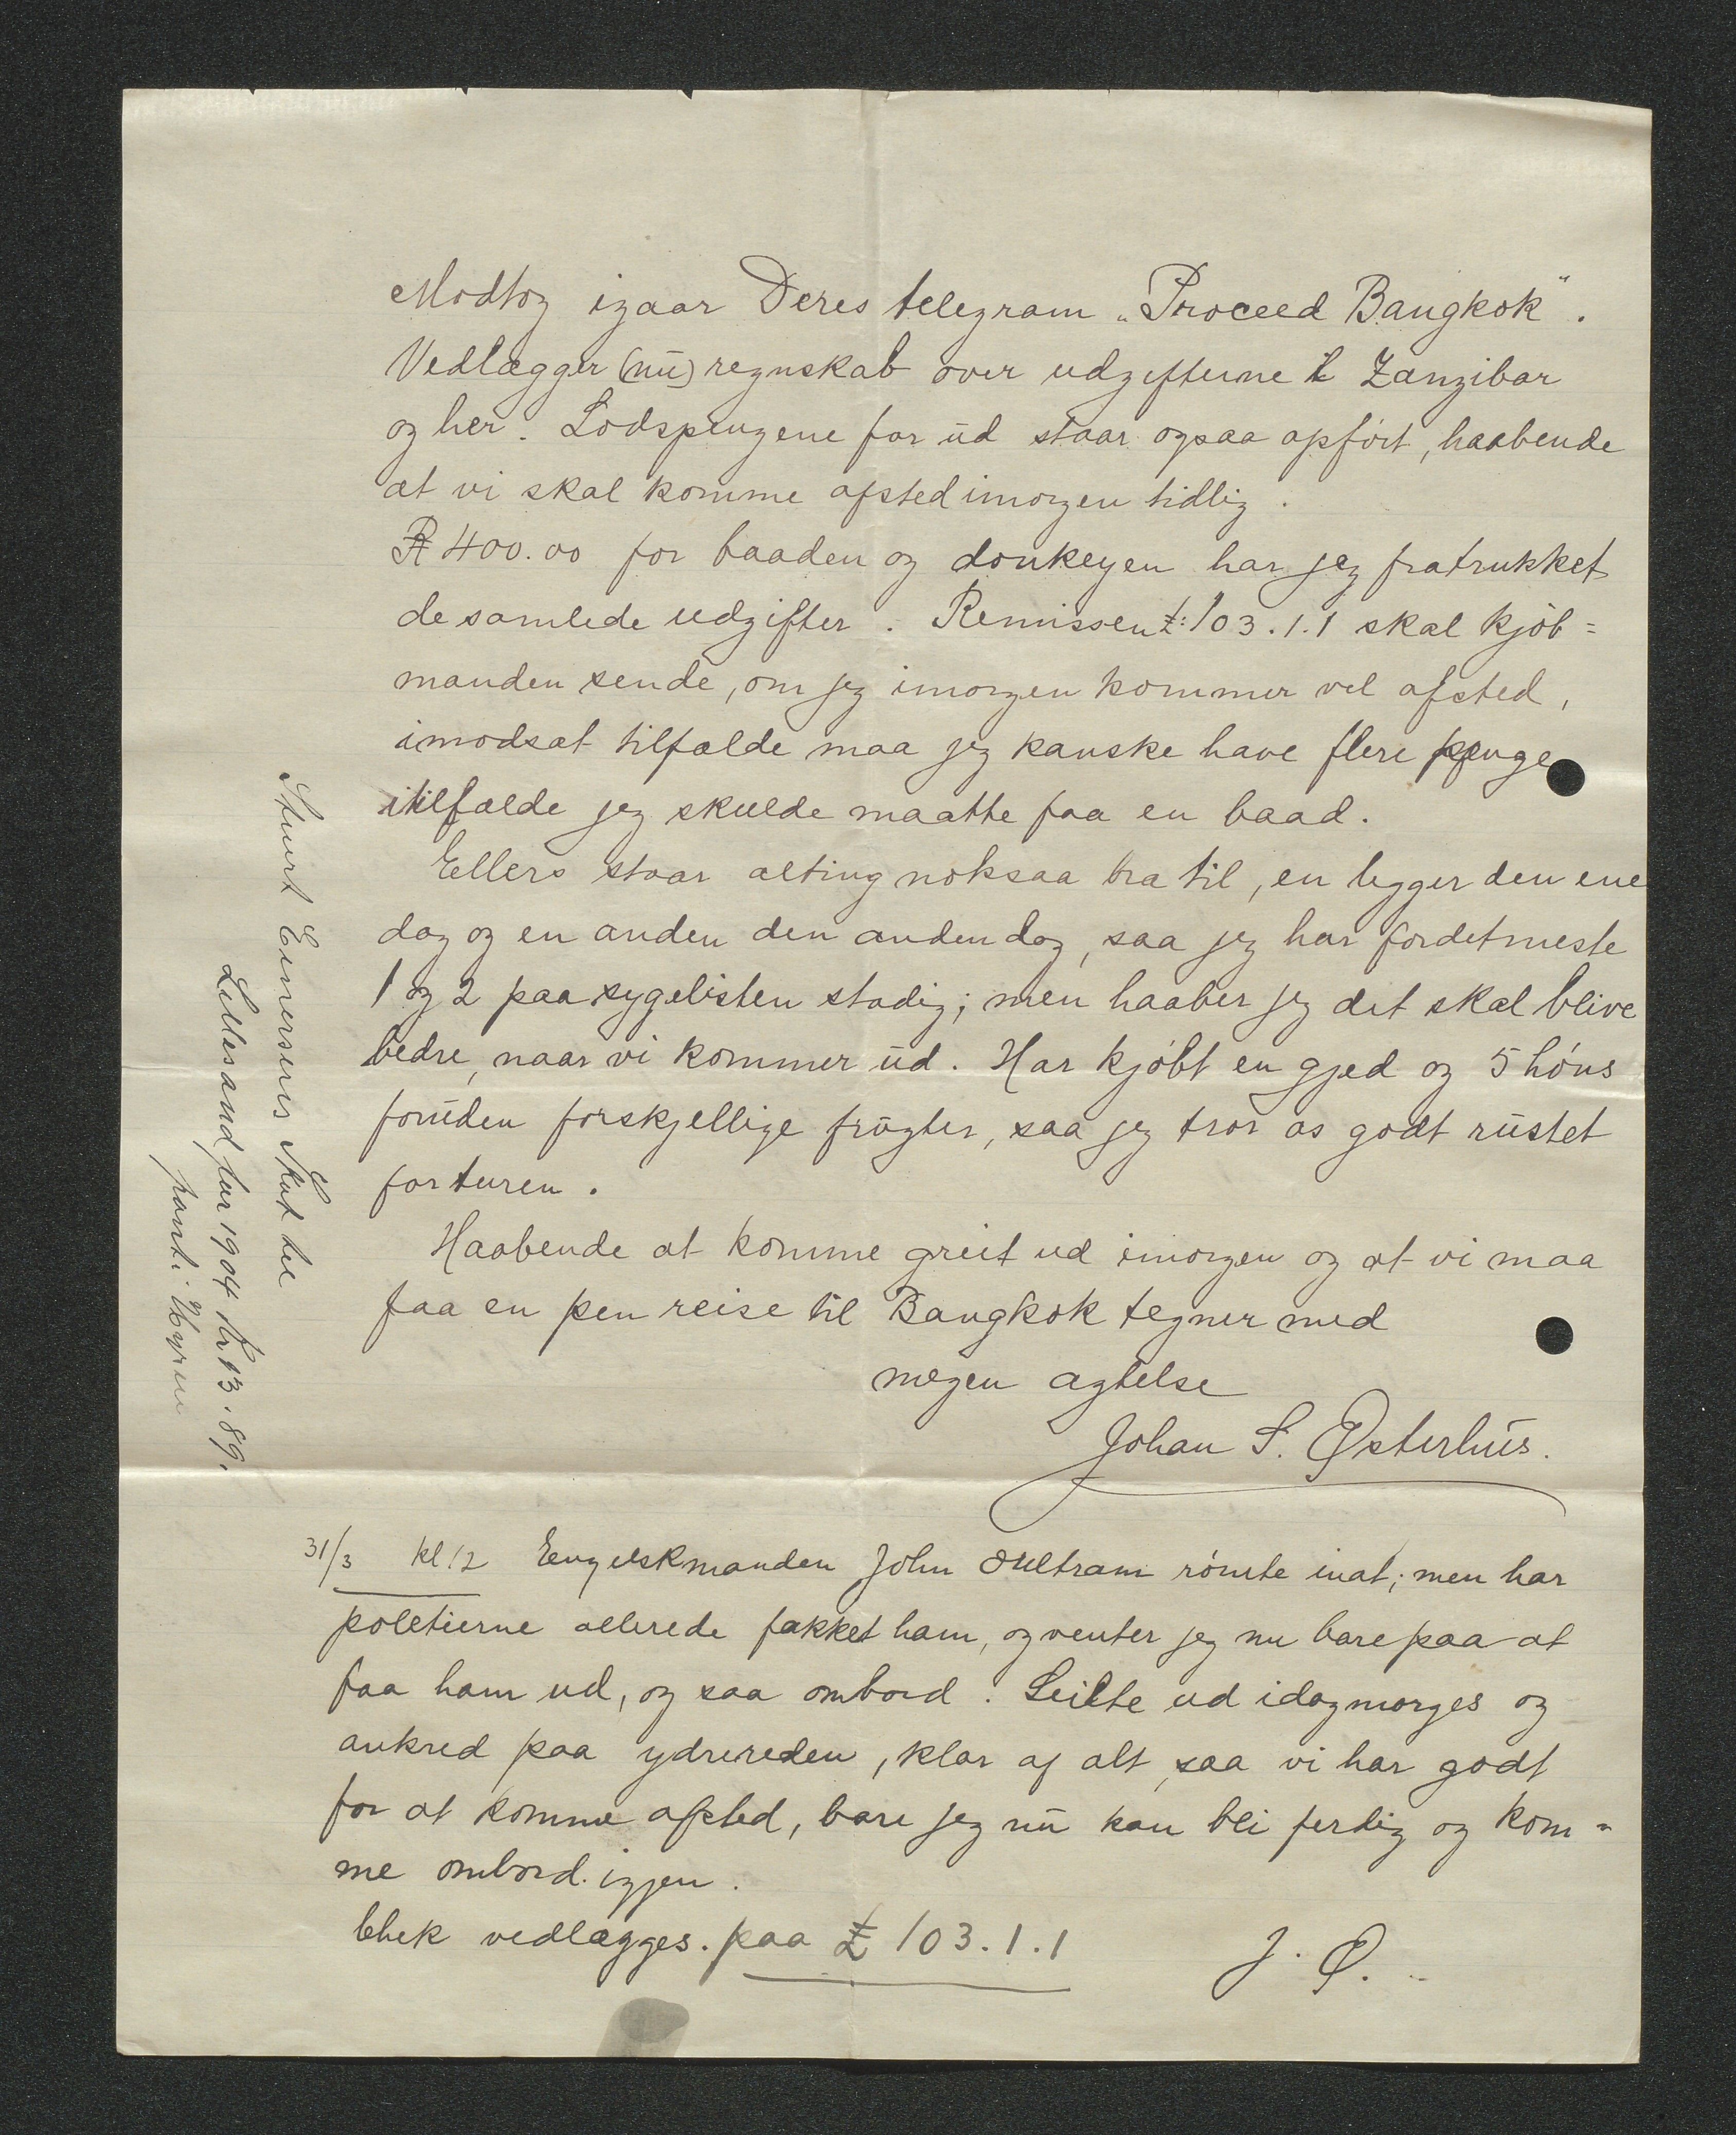 Modtog igaar Deres telegram „Proceed Bangkok".
Vedlægger (nu) regnskab over udgifterne i Zanzibar
og her. Lodspengene for ud staar ogsaa opført, haabende
at vi skal komme afsted imorgen tidlig.
R 400.00 for baaden og donkeyen har jeg fratrukket
de samlede udgifter. Remissen £:103.1.1 skal kjøb=
manden sende, om jeg imorgen kommer vel afsted,
imodsat tilfælde maa jeg kanske have flere penge
itilfælde jeg skulde maatte faa en baad.
Ellers staar alting noksaa bra til, en ligger den ene
dag og en anden den anden dag, saa jeg har fordetmeste
1 og 2 paa sygelisten stadig; men haaber jeg det skal blive
bedre, naar vi kommer ud. Har kjøbt en gjed og 5 høns
foruden forskjellige frugter, saa jeg tror os godt rustet
for turen.
Haabende at komme greit ud imorgen og at vi maa
faa en pen reise til Bangkok tegner med
megen agtelse
Johan S. Østerhus.
31/3 kl 12 Eengelskmanden John Oultram rømte inat; men har
poletierne allerede fakket ham, og venter jeg nu bare paa at
faa ham ud, og saa ombord. Seilte ud idagmorges og
ankred paa ydrereden, klar af alt, saa vi har godt
for at komme afsted, bare jeg nu kan bli ferdig og kom=
me ombord igjen.
Chek vedlægges. paa £ 103.1.1
J. Ø.
Stuert Einersens Skat til
Lillesand for 1904 Kr 13.89.